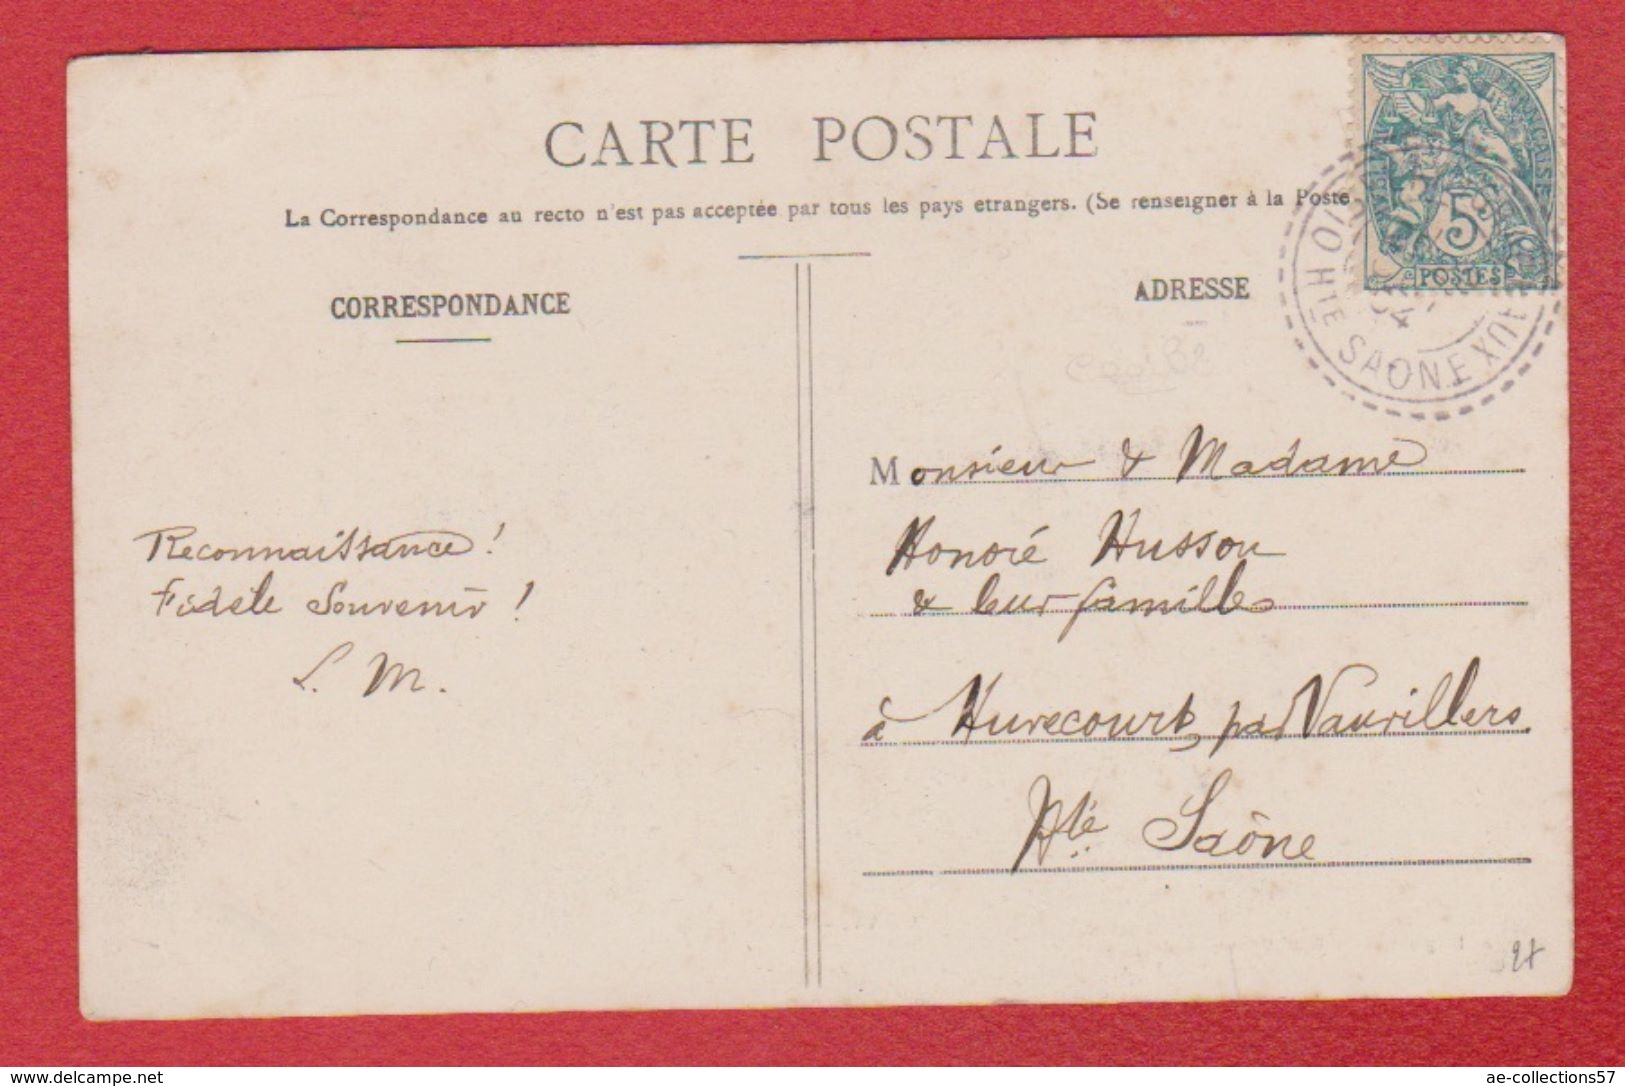 CARTE POSTALE
La Correspondance au recto n'est pas acceptée par tous les pays etrangers. (Se renseigner à la Poste
CORRESPONDANCE
ADRESSE
5
POSTES
HTE SAONE
04
Reconnaissance !
Fidèle Souvenir !
L. M.
Monsieur & Madame
Honoré Husson
& leur familles
à Hurecourt, par Vauvillers
Hte Saône
www.delcampe.net
ae-collections57